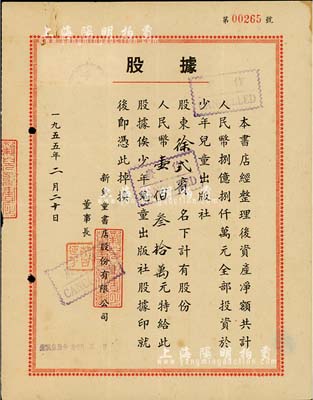 上海陽明拍賣
第 00265 號
股據
本書店經整理後資產淨額共計
人民幣捌億捌仟萬元全部投資於
少年兒童出版社
股東徐弍齋名下計有股份
人民幣壹佰叁拾萬元特給此
股據俟少年兒童出版社股據印就
後即憑此掉換
新兒童書店股份有限公司
董事長
一九五五年二月二十日
作
CANCELLED
上海陽明拍賣
www.ymauction.com